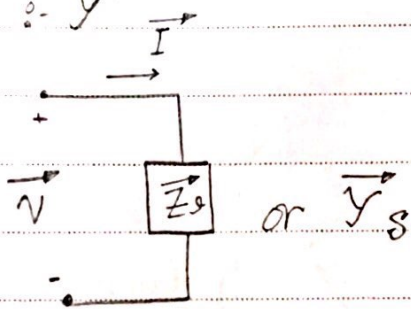 :- y
I
+
V
Zs or Ys
-